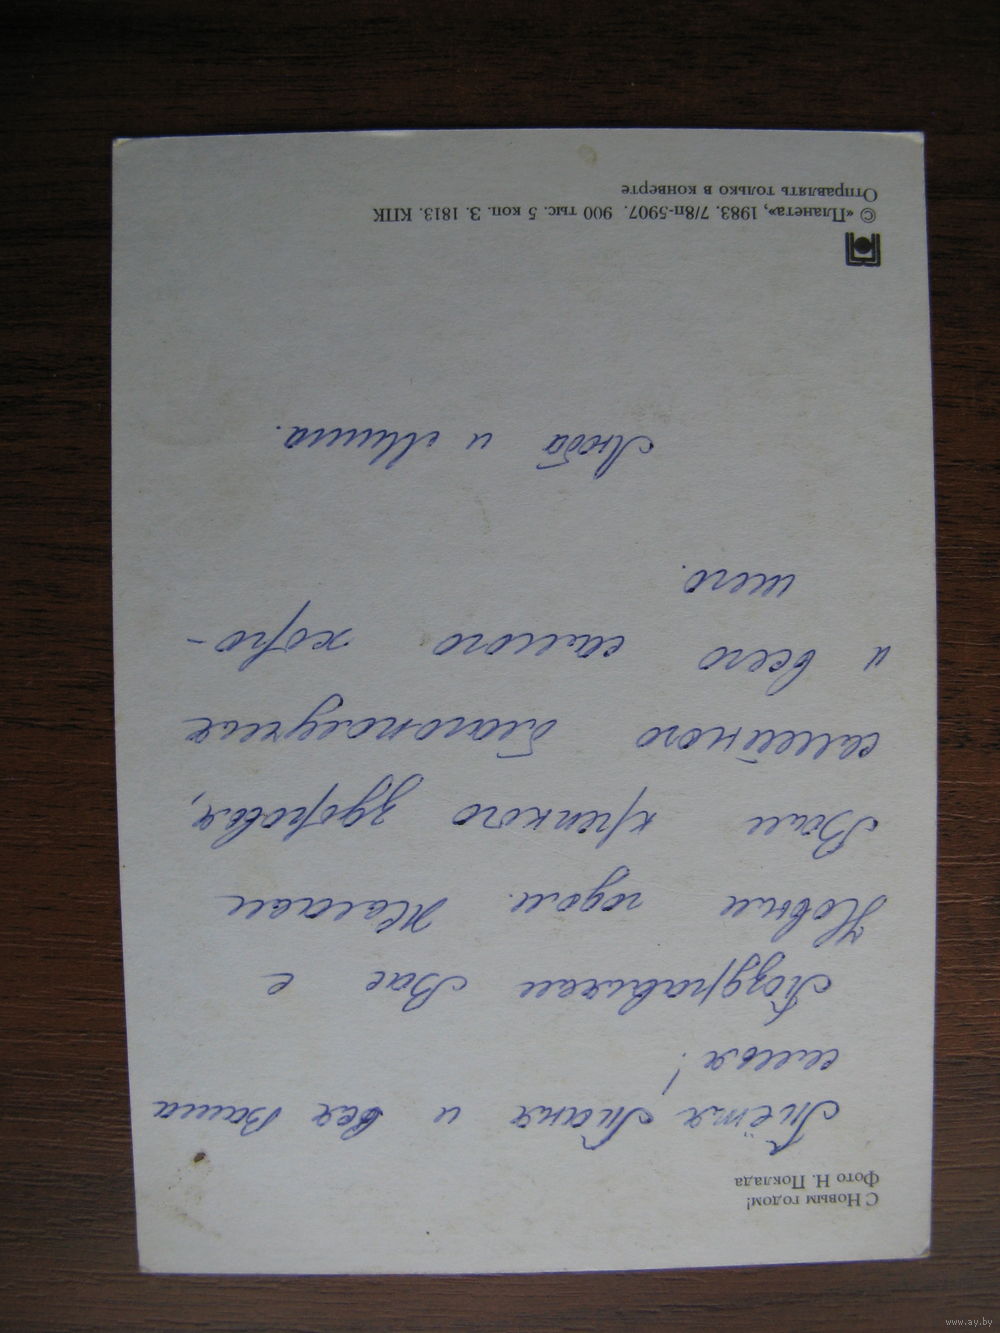 С Новым годом!
Фото Н. Поклада
Тётя Таня и вся Ваша
семья!
Поздравляем Вас с
Новым годом. Желаем
Вам крепкого здоровья,
семейного благополучия
и всего самого хоро-
шего.
Люба и Миша.
© «Планета», 1983. 7/8п-5907. 900 тыс. 5 коп. З. 1813. КПК
Отправлять только в конверте
www.ay.by